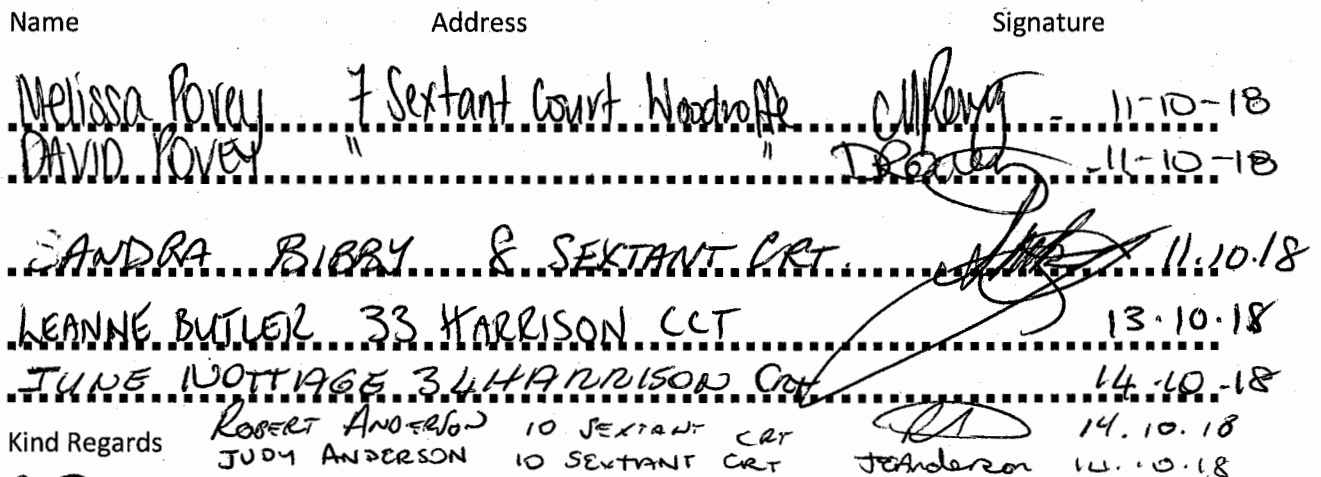 Name Address Signature
Melissa Povey 7 Sextant Court Woodroffe MPovey - 11-10-18
DAVID POVEY " " DPovey - 11-10-18
SANDRA BIBBY 8 SEXTANT CRT. 11.10.18
LEANNE BUTLER 33 HARRISON CCT 13.10.18
JUNE NOTTAGE 34 HARRISON 14.10.18
ROBERT ANDERSON 10 SEXTANT CRT 14.10.18
Kind Regards
JUDY ANDERSON 10 SEXTANT CRT JEAnderson 14.10.18